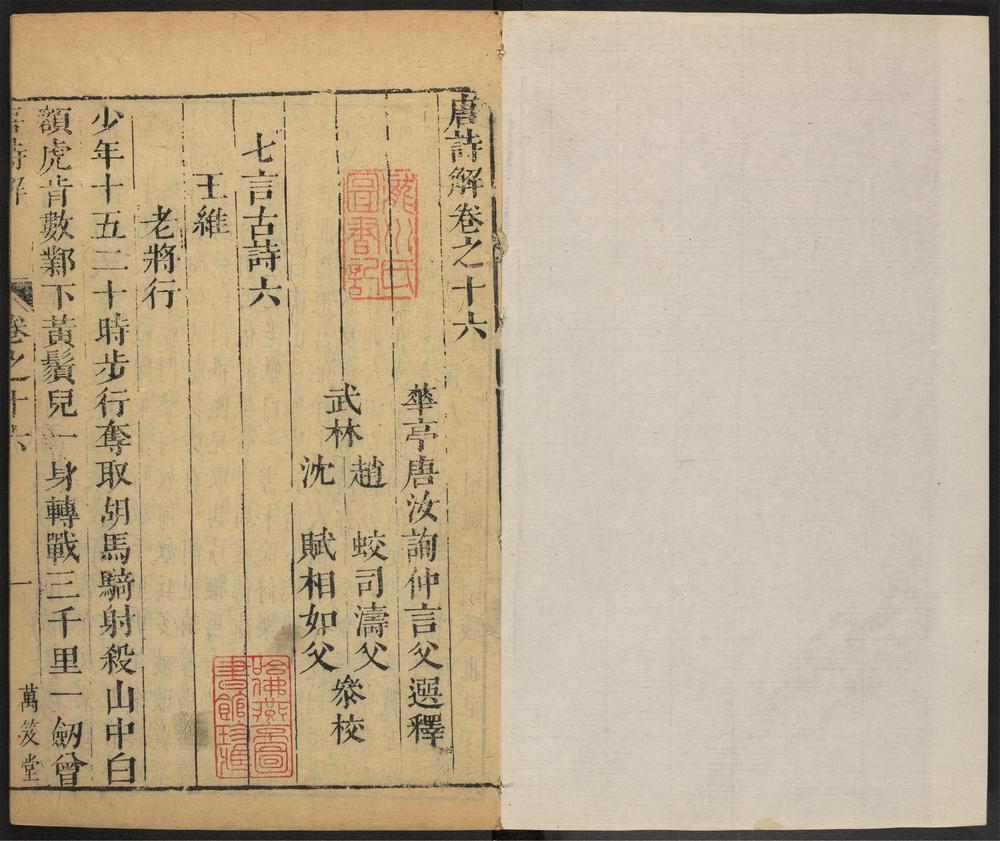 唐詩解卷之十六
華亭唐汝詢仲言父選釋
武林
趙 蛟司濤父
沈 賦相如父
參校
七言古詩六
王維
老將行
少年十五二十時步行奪取胡馬騎射殺山中白
額虎肯數鄴下黃鬚兒一身轉戰三千里一劒曾
唐詩解
卷之十六
一
萬笈堂
哈佛燕京圖
書館珍藏